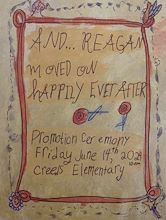 AND... REAGAN
moved on
HAPPILY EVER AFTER
Promotion Ceremony
Friday June 14th 2024
Creeds Elementary